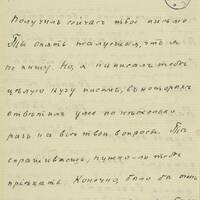 Получилъ сейчасъ твое письмо.
Ты опять жалуешься, что я
не пишу. Но, я написалъ тебѣ
цѣлую кучу писемъ, въ которыхъ
отвѣтилъ уже по нѣсколько
разъ на всѣ твои вопросы. Ты
спрашиваешь, нужно-ли тебѣ
пріѣхать. Конечно, было бы очень